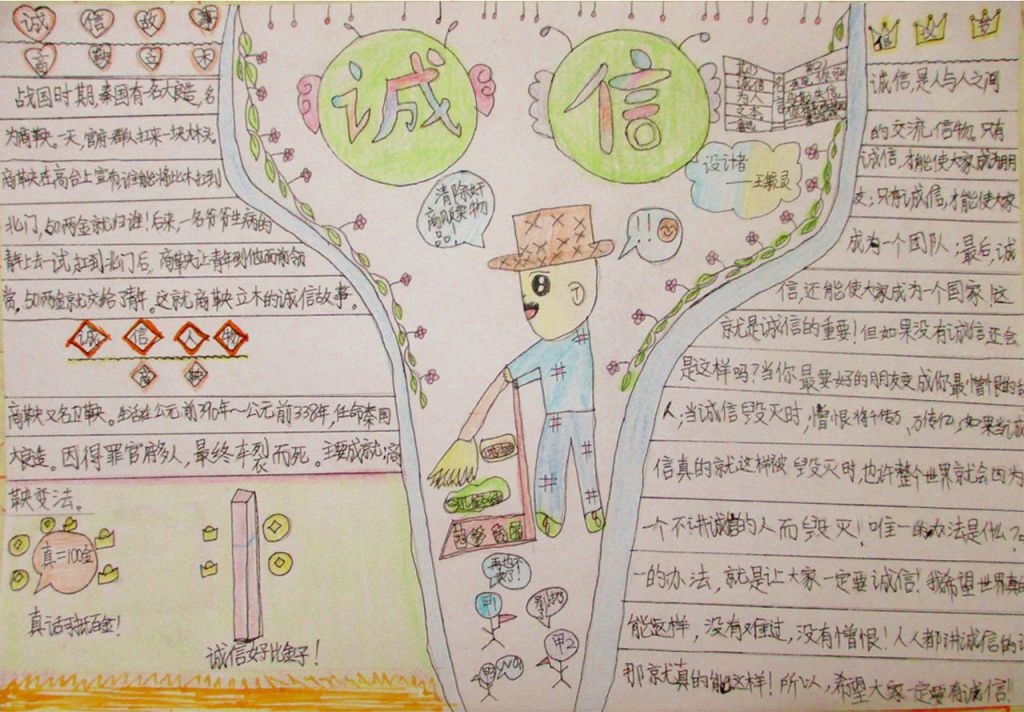 诚信故事
商鞅立木
战国时期,秦国有名大良造,名
为商鞅。一天,官府群人扛来一块大木头。
商鞅在高台上宣布,谁能将此木扛到
北门,50两金就归谁!后来,一名
青年上去一试,扛到北门后,商鞅让青年到他面前领
赏,50两金就交给了青年。这就商鞅立木的诚信故事。
诚信人物
商鞅
商鞅又名卫鞅。生活在公元前390年~公元前338年,任命秦国
大良造。因得罪官府多人,最终车裂而死。主要成就:商
鞅变法。
真=100金
真话可抵百金!
诚信好比金子!
诚信
设计者
清除奸
商
!!
再也不
来了!
甲1
甲2
No
诚信,是人与人之间
的交流信物。只有
诚信,才能使大家成为朋
友;只有诚信,才能使大家
成为一个团队;最后,诚
信,还能使大家成为一个国家!这
就是诚信的重要!但如果没有诚信还会
是这样吗?当你最要好的朋友变成你最憎恨的
人;当诚信毁灭时,憎恨将千传万、万传亿,如果当诚
信真的就这样被毁灭时,也许整个世界就会因为
一个不讲诚信的人而毁灭!唯一的办法是什么?
一的办法,就是让大家一定要诚信!我希望世界
能这样,没有难过,没有憎恨!人人都讲诚信的
那就真的能这样!所以,希望大家一定要有诚信!